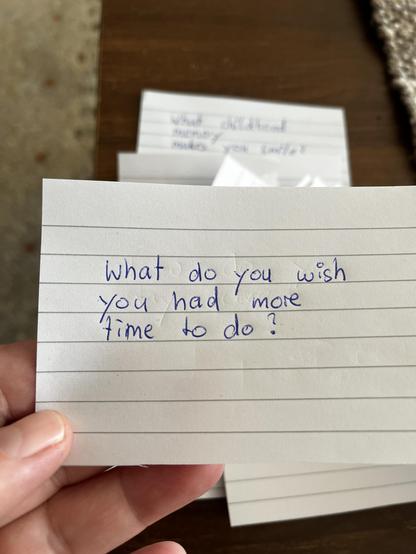 What childhood
memory
makes you smile?
What do you wish
you had more
time to do?